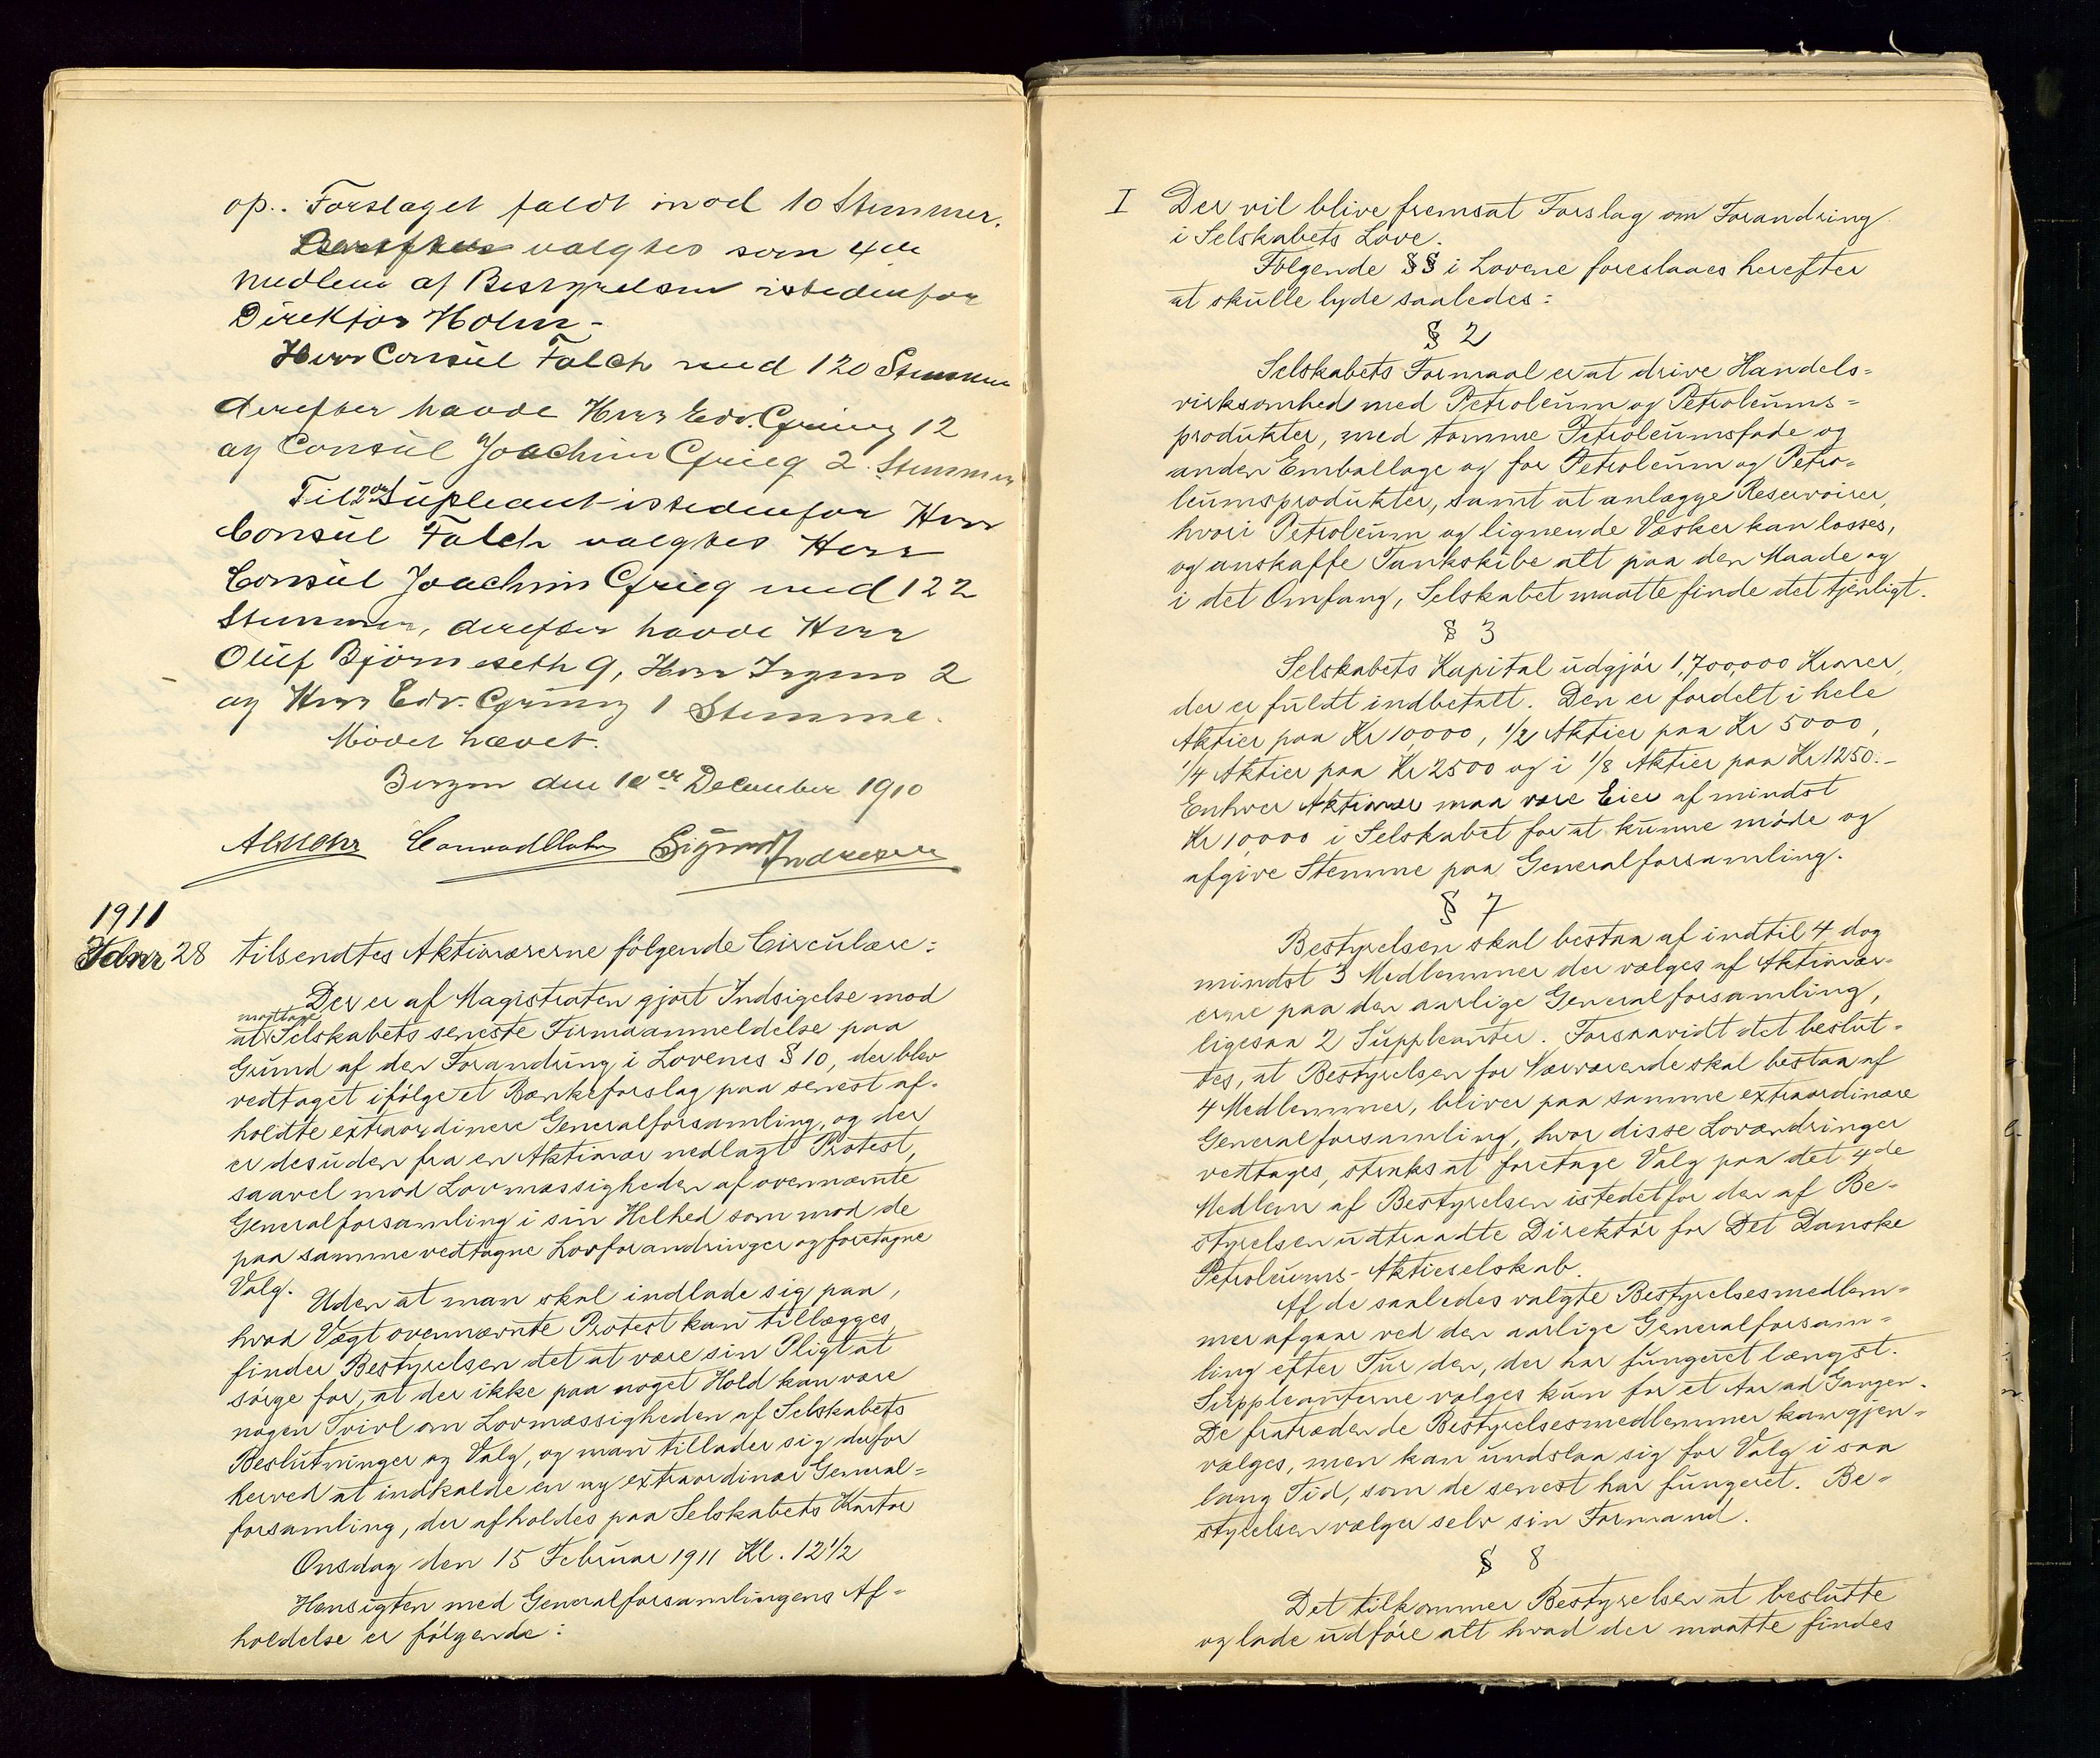 op.. Forslaget faldt mod 10 Stemmer.
Derefter valgtes som 4de
Medlem af Bestyrelsen istedenfor
Direktør Holm –
Herr Consul Falch med 120 Stemmer
derefter havde Herr Edv. Grieg 12
og Consul Joachim Grieg 2 Stemmer
Til 2den Supleant istedenfor Herr
Consul Falch valgtes Herr
Consul Joachim Grieg med 122
Stemmer, derefter havde Herr
Oluf Bjørneseth 9, Herr Irgens 2
og Herr Edv. Grieg 1 Stemme.
Mødet hævet.
Bergen den 10de December 1910
Conrad Mohr Sigurd Indresen
1911
28 tilsendtes Aktionærerne følgende Circulære:
Der er af Magistraten gjort Indsigelse mod
at modtage Selskabets seneste Firmaanmeldelse paa
Grund af den Forandring i Lovenes § 10, der blev
vedtaget ifølge et Bænkeforslag paa senest af-
holdte extraordinære Generalforsamling, og der
er desuden fra en Aktionær nedlagt Protest,
saavel mod Lovmæssigheden af ovennævnte
Generalforsamling i sin Helhed som mod de
paa samme vedtagne Lovforandringer og foretagne
Valg.
Uden at man skal indlade sig paa,
hvad Vægt ovennævnte Protest kan tillægges,
finder Bestyrelsen det at være sin Pligt at
sørge for, at der ikke paa noget Hold kan være
nogen Tvivl om Lovmæssigheden af Selskabets
Beslutninger og Valg, og man tillader sig derfor
herved at indkalde en ny extraordinær General=
forsamling, der afholdes paa Selskabets Kontor
Onsdag den 15 Februar 1911 Kl. 12½
Hensigten med Generalforsamlingens Af=
holdelse er følgende:
I Der vil blive fremsat Forslag om Forandring
i Selskabets Love.
Følgende §§ i Lovene foreslaaes herefter
at skulle lyde saaledes:
§ 2
Selskabets Formaal er at drive Handels=
virksomhed med Petroleum og Petroleums=
produkter, med tomme Petroleumsfade og
anden Emballage og for Petroleum og Petro=
leumsprodukter, samt at anlægge Reservoirer,
hvori Petroleum og lignende Vædsker kan losses,
og anskaffe Tankskibe alt paa den Maade og
i det Omfang, Selskabet maatte finde det tjenligt.
§ 3
Selskabets Kapital udgjør 1,700,000 Kroner,
der er fuldt indbetalt. Den er fordelt i hele
Aktier paa Kr 10,000, 1/2 Aktier paa Kr 5000,
1/4 Aktier paa Kr 2500 og i 1/8 Aktier paa Kr 1250.–
Enhver Aktionær maa være Eier af mindst
Kr 10,000 i Selskabet for at kunne møde og
afgive Stemme paa Generalforsamling.
§ 7
Bestyrelsen skal bestaa af indtil 4 dog
mindst 3 Medlemmer der vælges af Aktionær-
erne paa den aarlige Generalforsamling,
ligesaa 2 Suppleanter. Forsaavidt det beslut-
tes, at Bestyrelsen for Nærværende skal bestaa af
4 Medlemmer, bliver paa samme extraordinære
Generalforsamling, hvor disse Lovændringer
vedtages, straks at foretage Valg paa det 4de
Medlem af Bestyrelsen istedetfor den af Be-
styrelsen udtraadte Direktør for Det Danske
Petroleums-Aktieselskab.
Af de saaledes valgte Bestyrelsesmedlem-
mer afgaar ved den aarlige Generalforsam-
ling efter Tur den, der har fungeret længst.
Suppleanterne vælges kun for et Aar ad Gangen.
De fratrædende Bestyrelsesmedlemmer kan gjen-
vælges, men kan undslaa sig for Valg i saa
lang Tid, som de senest har fungeret. Be-
styrelsen vælger selv sin Formand.
§ 8
Det tilkommer Bestyrelsen at beslutte
og lade udføre alt hvad der maatte findes